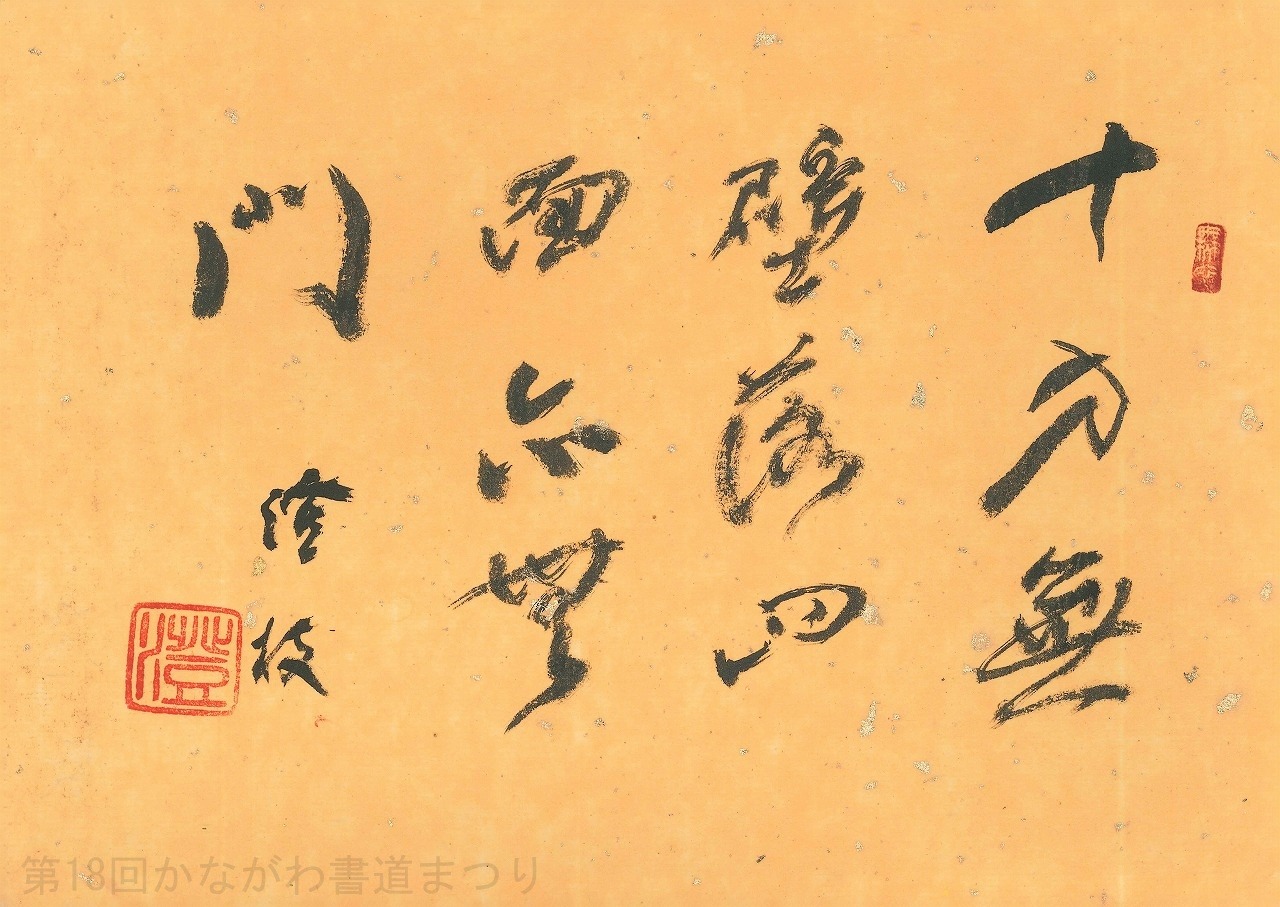 十方無
壁落四
面亦無
門
澄枝
澄
第18回かながわ書道まつり